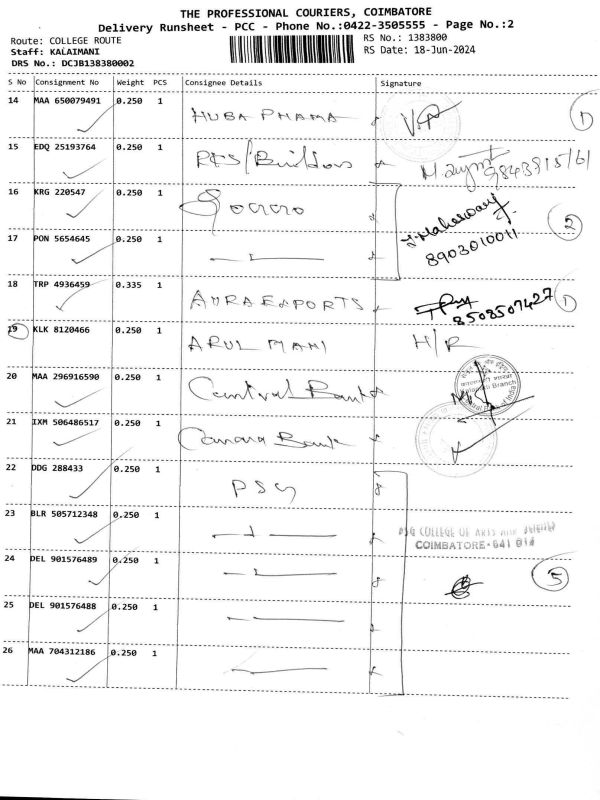 THE PROFESSIONAL COURIERS, COIMBATORE
Delivery Runsheet - PCC - Phone No.:0422-3505555 - Page No.:2
Route: COLLEGE ROUTE
RS No.: 1383800
Staff: KALAIMANI
RS Date: 18-Jun-2024
DRS No.: DCJB138380002
S No Consignment No Weight PCS Consignee Details Signature
14 MAA 650079491 0.250 1 HUBA PHAMA 1
15 EDQ 25193764 0.250 1 Builders
16 KRG 220547 0.250 1
17 PON 5654645 0.250 1 2
8903010011
18 TRP 4936459 0.335 1 AMRA EXPORTS 1
8508507427
19 KLK 8120466 0.250 1 ARUL MANI H/R
20 MAA 296916590 0.250 1 Central Bank
21 IXM 506486517 0.250 1 Canara Bank
22 DDG 288433 0.250 1 PSG
23 BLR 505712348 0.250 1
PSG COLLEGE OF ARTS AND SCIENCE
COIMBATORE-641 014
24 DEL 901576489 0.250 1 5
25 DEL 901576488 0.250 1
26 MAA 704312186 0.250 1